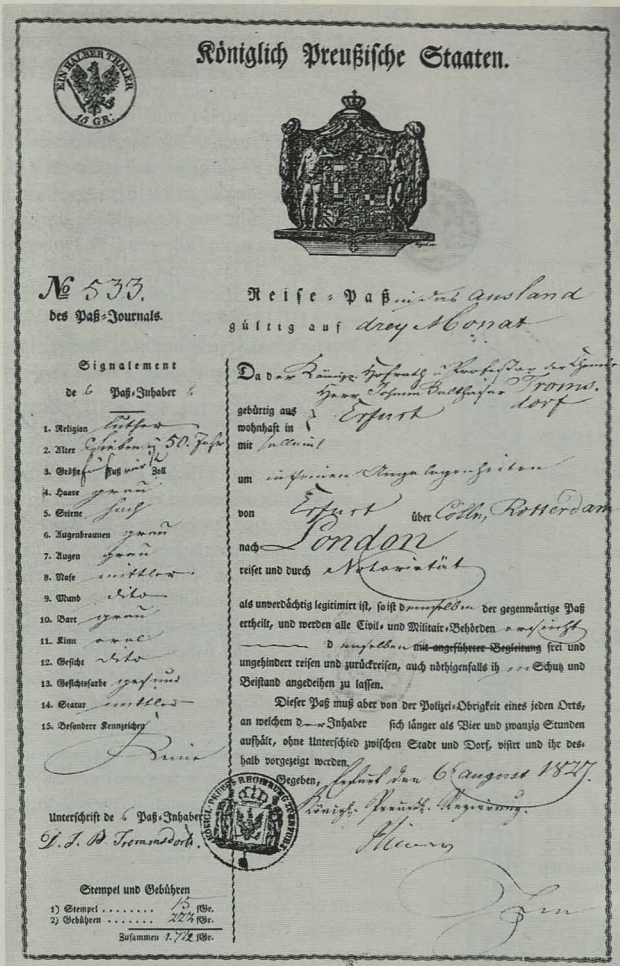 EIN HALBER THALER
15 GR.
Königlich Preußische Staaten.
No 533.
des Paß-Journals.
Reise-Paß in das Ausland
gültig auf drey Monat
Signalement
des Paß-Inhabers
1. Religion luther
2. Alter sieben u 50. Jahr
3. Größe fünf Fuß vier Zoll
4. Haare grau
5. Stirne hoch
6. Augenbraunen grau
7. Augen grau
8. Nase mittler
9. Mund dito
10. Bart grau
11. Kinn oval
12. Gesicht dito
13. Gesichtsfarbe gesund
14. Statur mittler
15. Besondere Kennzeichen
Keine
Unterschrift des Paß-Inhabers
D. J. B. Trommsdorff.
Stempel und Gebühren
1) Stempel ........ 15 sGr.
2) Gebühren ....... sGr.
Zusammen sGr.
Da der Königl. Hofrath u Professor der Chemie
Herr Johann Balthasar Troms-
dorf
gebürtig aus
wohnhaft in } Erfurt
mit
um in seinen Angelegenheiten
von Erfurt über Cölln, Rotterdam
nach London
reiset und durch Notorietät
als unverdächtig legitimirt ist, so ist demselben der gegenwärtige Paß
ertheilt, und werden alle Civil- und Militair-Behörden ersucht
demselben mit angeführter Begleitung frei und
ungehindert reisen und zurückreisen, auch nöthigenfalls ihm Schutz und
Beistand angedeihen zu lassen.
Dieser Paß muß aber von der Polizei-Obrigkeit eines jeden Orts,
an welchem der Inhaber sich länger als Vier und zwanzig Stunden
aufhält, ohne Unterschied zwischen Stadt und Dorf, visirt und ihr des-
halb vorgezeigt werden.
Gegeben, Erfurt den 6t August 1827.
Königl. Preuß. Regierung.